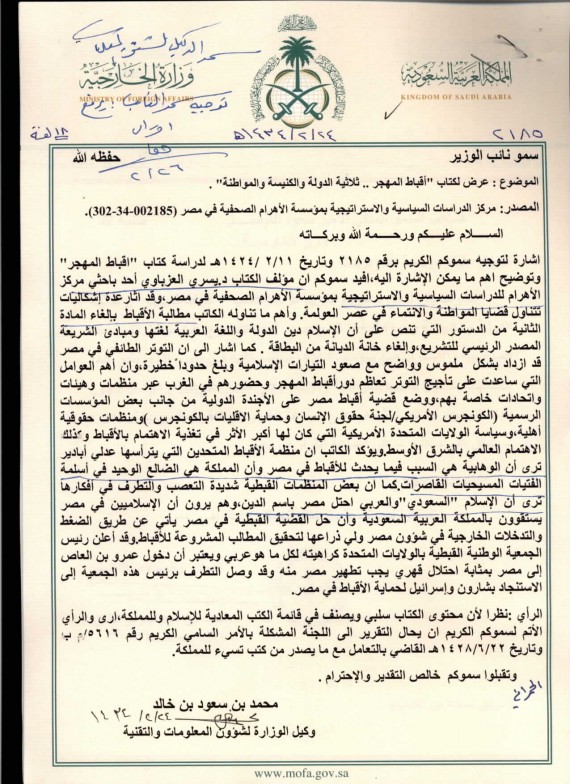 سعد الدكيل لشئون المعلومات
وزارة الخارجية
MINISTRY OF FOREIGN AFFAIRS
المملكة العربية السعودية
KINGDOM OF SAUDI ARABIA
٢/٢٦
١٤٣٤/٢/٢٤هـ
٢١٨٥
سمو نائب الوزير حفظه الله
الموضوع : عرض لكتاب "أقباط المهجر .. ثلاثية الدولة والكنيسة والمواطنة" .
المصدر: مركز الدراسات السياسية والاستراتيجية بمؤسسة الأهرام الصحفية في مصر (002185-34-302).
السلام عليكم ورحمة الله وبركاته
اشارة لتوجيه سموكم الكريم برقم ٢١٨٥ وتاريخ ٢/١١/ ١٤٢٤هـ لدراسة كتاب "اقباط المهجر"
وتوضيح اهم ما يمكن الإشارة اليه،افيد سموكم ان مؤلف الكتاب د.يسري العزباوي أحد باحثي مركز
الأهرام للدراسات السياسية والاستراتيجية بمؤسسة الأهرام الصحفية في مصر،وقد اثار عدة إشكاليات
تتناول قضايا المواطنة والانتماء في عصر العولمة. وأهم ما تناوله الكاتب مطالبة الأقباط بإلغاء المادة
الثانية من الدستور التي تنص على أن الإسلام دين الدولة واللغة العربية لغتها ومبادئ الشريعة
المصدر الرئيسي للتشريع،وإلغاء خانة الديانة من البطاقة . كما اشار الى ان التوتر الطائفي في مصر
قد ازداد بشكل ملموس وواضح مع صعود التيارات الإسلامية وبلغ حدودا خطيرة،وان أهم العوامل
التي ساعدت على تأجيج التوتر تعاظم دور أقباط المهجر وحضورهم في الغرب عبر منظمات وهيئات
واتحادات خاصة بهم،ووضع قضية أقباط مصر على الأجندة الدولية من جانب بعض المؤسسات
الرسمية (الكونجرس الأمريكي/لجنة حقوق الإنسان وحماية الاقليات بالكونجرس )ومنظمات حقوقية
أهلية،وسياسة الولايات المتحدة الأمريكية التي كان لها أكبر الأثر في تغذية الاهتمام بالأقباط وكذلك
الاهتمام العالمي بالشرق الأوسط.ويؤكد الكاتب ان منظمة الأقباط المتحدين التي يترأسها عدلي أبادير
ترى أن الوهابية هي السبب فيما يحدث للأقباط في مصر وأن المملكة هي الضالع الوحيد في أسلمة
الفتيات المسيحيات القاصرات.كما ان بعض المنظمات القبطية شديدة التعصب والتطرف في أفكارها
ترى أن الإسلام "السعودي"والعربي احتل مصر باسم الدين،وهم يرون أن الإسلاميين في مصر
يستقوون بالمملكة العربية السعودية وأن حل القضية القبطية في مصر يأتي عن طريق الضغط
والتدخلات الخارجية في شؤون مصر ولي ذراعها لتحقيق المطالب المشروعة للأقباط.وقد أعلن رئيس
الجمعية الوطنية القبطية بالولايات المتحدة كراهيته لكل ما هو عربي ويعتبر أن دخول عمرو بن العاص
إلى مصر بمثابة احتلال قهري يجب تطهير مصر منه وقد وصل التطرف برئيس هذه الجمعية إلى
الاستنجاد بشارون وإسرائيل لحماية الأقباط في مصر.
الرأي : نظرا لأن محتوى الكتاب سلبي ويصنف في قائمة الكتب المعادية للإسلام وللمملكة،ارى والرأي
الأتم لسموكم الكريم ان يحال التقرير الى اللجنة المشكلة بالأمر السامي الكريم رقم ٥٦١٦/م ب
وتاريخ ١٤٢٨/٦/٢٢هـ القاضي بالتعامل مع ما يصدر من كتب تسيء للمملكة.
وتقبلوا سموكم خالص التقدير والإحترام .
محمد بن سعود بن خالد
٢/٢٤/ ١٤٣٤
وكيل الوزارة لشؤون المعلومات والتقنية
www.mofa.gov.sa